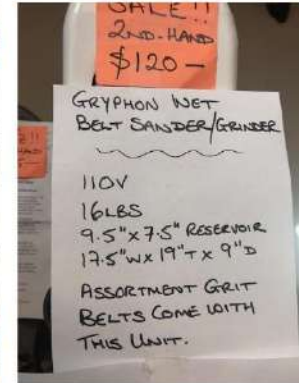 SALE!!
2ND-HAND
$120—
GRYPHON WET
BELT SANDER/GRINDER
110V
16LBS
9.5" x 7.5" RESERVOIR
17.5"W x 19"T x 9"D
ASSORTMENT GRIT
BELTS COME WITH
THIS UNIT.